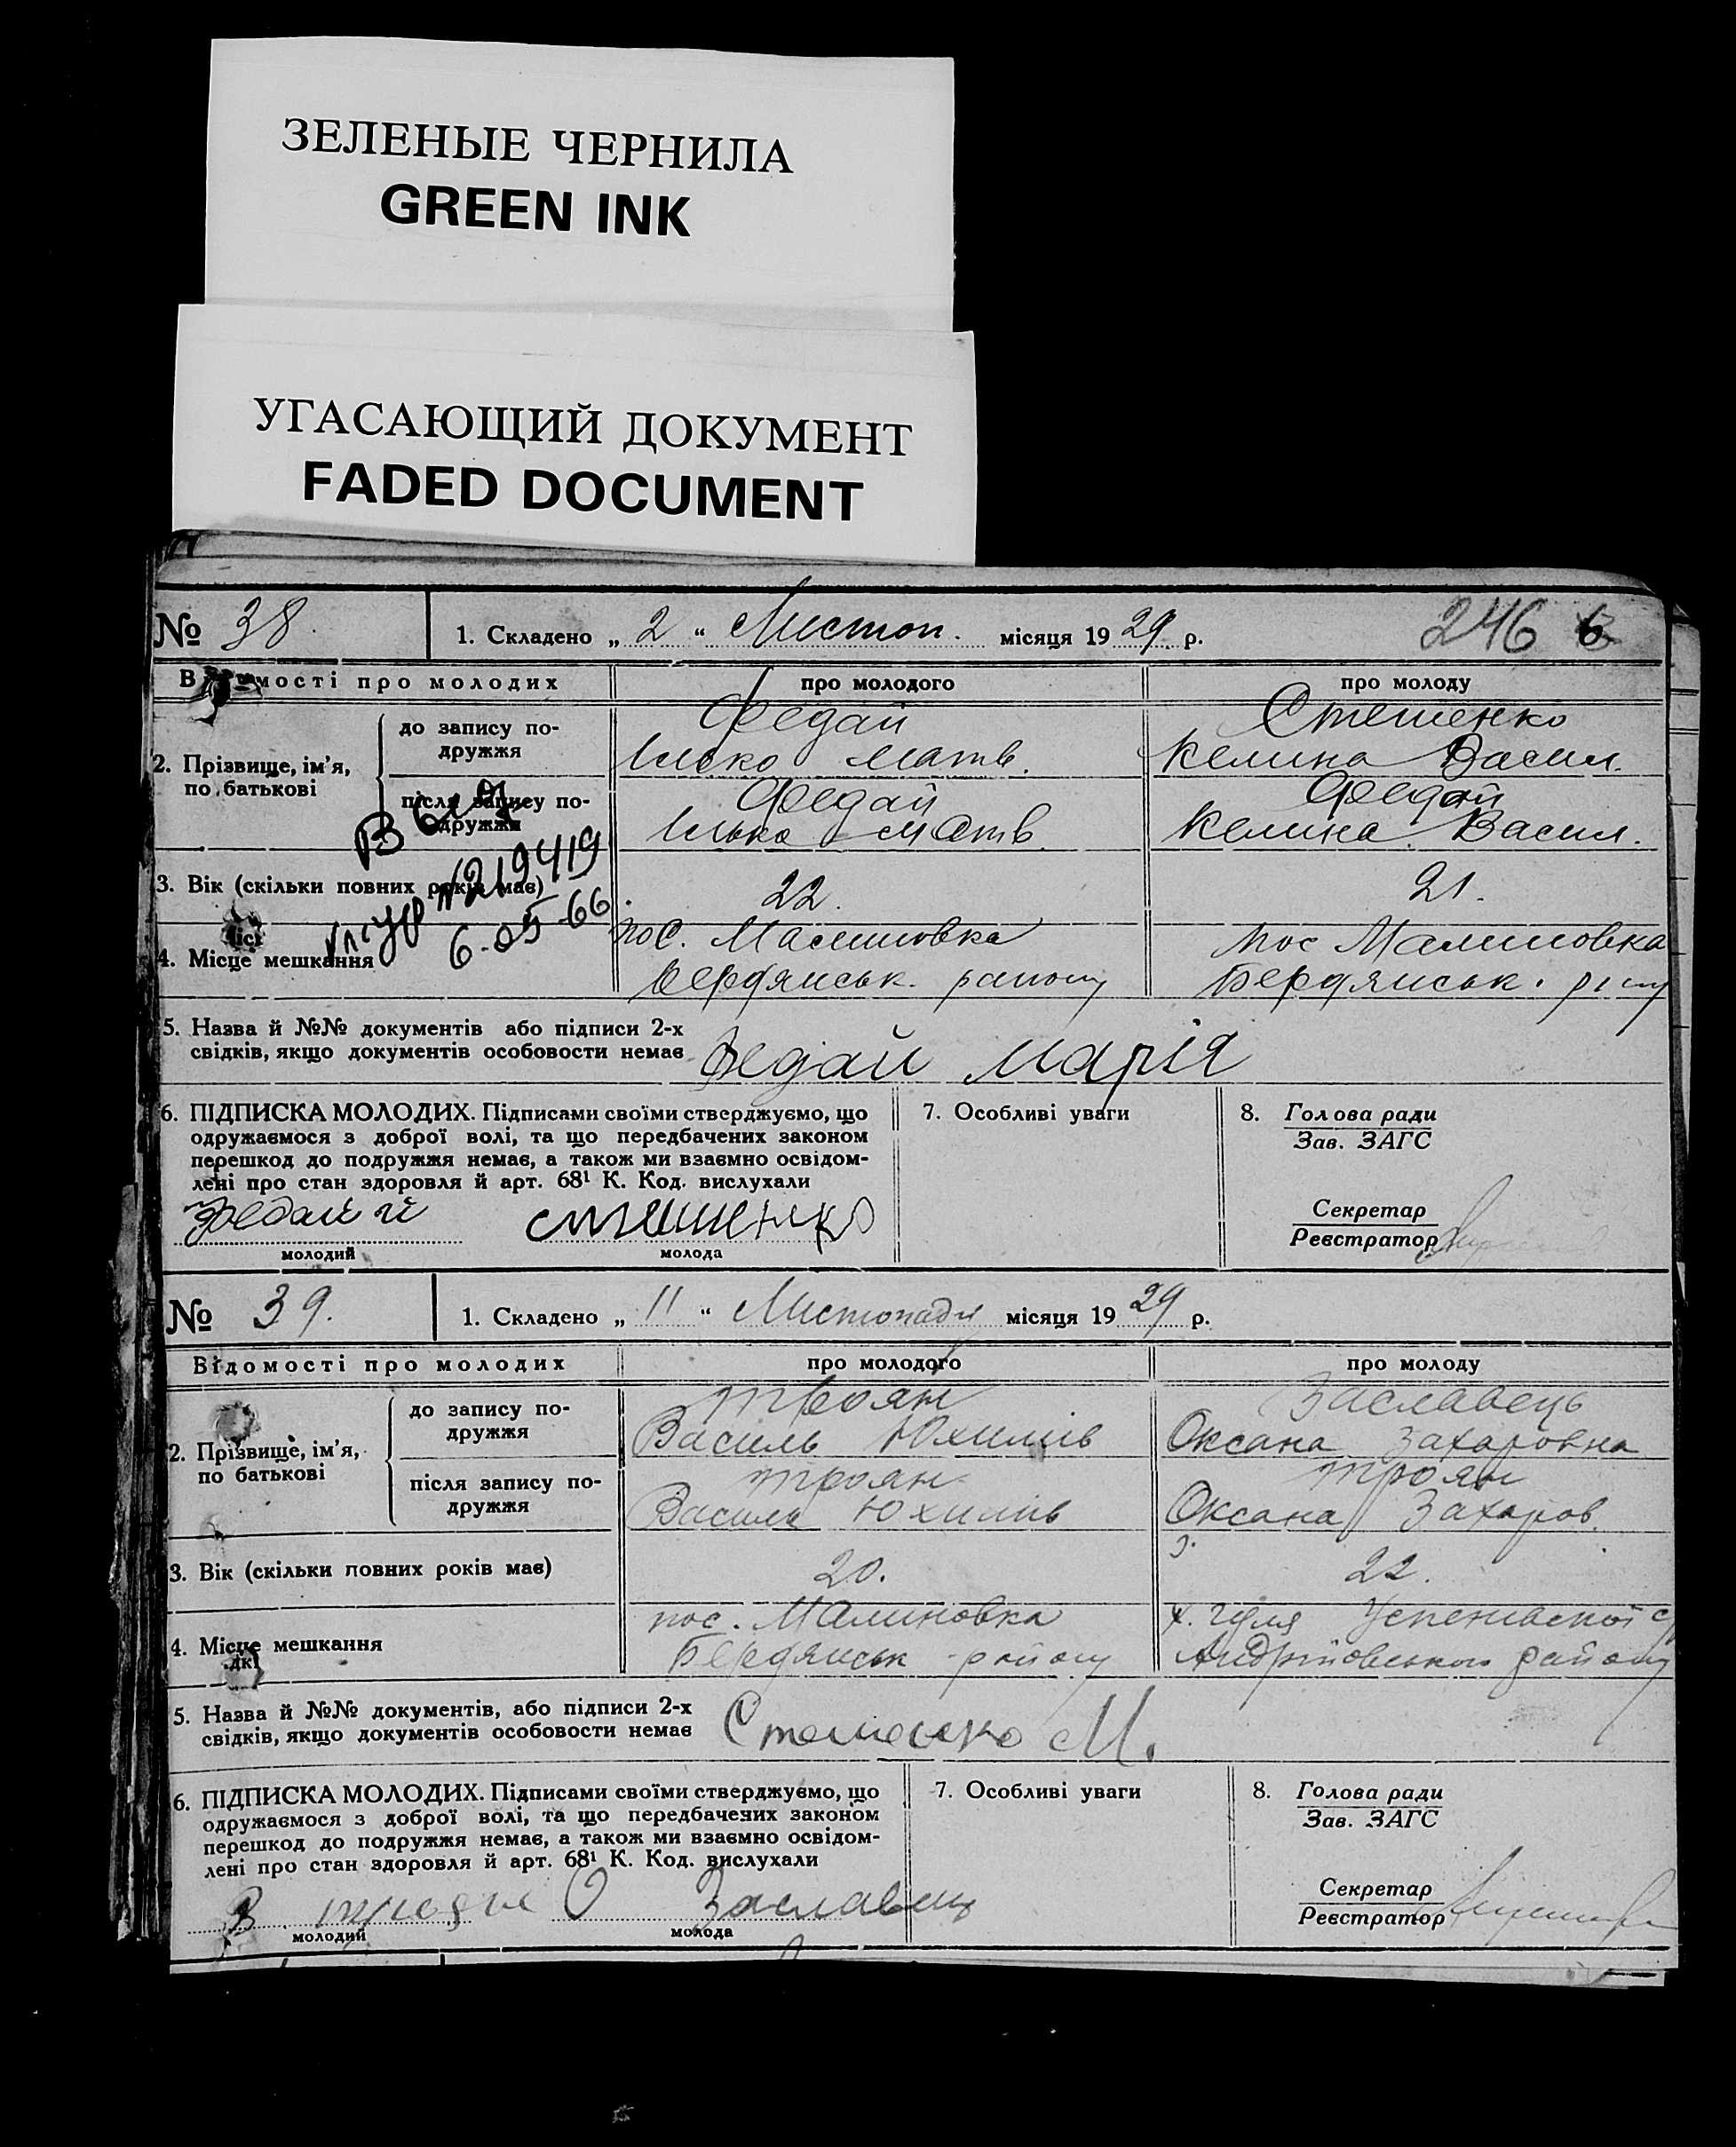 ЗЕЛЕНЫЕ ЧЕРНИЛА
GREEN INK
УГАСАЮЩИЙ ДОКУМЕНТ
FADED DOCUMENT
№ 38. 1. Складено „ 2 “ Листоп. місяця 19 29 р. 246
Відомості про молодих про молодого про молоду
2. Прізвище, ім’я, по батькові
до запису подружжя
Федай Стешенко
Ілько Матв. Келина Васил.
після запису подружжя
Федай Федай
Ілько Матв. Келина Васил.
№219419
6-05-66
3. Вік (скільки повних років має) 22. 21.
4. Місце мешкання
пос. Малиновка пос Малиновка
Бердянськ. району Бердянськ.
5. Назва й №№ документів або підписи 2-х
свідків, якщо документів особовости немає Федай Марія
6. ПІДПИСКА МОЛОДИХ. Підписами своїми стверджуємо, що
одружаємося з доброї волі, та що передбачених законом
перешкод до подружжя немає, а також ми взаємно освідом-
лені про стан здоров’я й арт. 68¹ К. Код. вислухали
Федай стешенко
молодий молода
7. Особливі уваги
8. Голова ради
Зав. ЗАГС
Секретар
Реєстратор
№ 39. 1. Складено „ 11 “ Листопада місяця 19 29 р.
Відомості про молодих про молодого про молоду
2. Прізвище, ім’я, по батькові
до запису подружжя
Троян Заславець
Василь Юхимів Оксана Захаровна
після запису подружжя
Троян Троян
Василь Юхимів Оксана Захаров.
3. Вік (скільки повних років має) 20. 22.
4. Місце мешкання
пос. Малиновка х. Успенівської
Бердянськ району Андріївського району
5. Назва й №№ документів, або підписи 2-х
свідків, якщо документів особовости немає Стешенко М.
6. ПІДПИСКА МОЛОДИХ. Підписами своїми стверджуємо, що
одружаємося з доброї волі, та що передбачених законом
перешкод до подружжя немає, а також ми взаємно освідом-
лені про стан здоровля й арт. 68¹ К. Код. вислухали
В О Заславец
молодий молода
7. Особливі уваги
8. Голова ради
Зав. ЗАГС
Секретар
Реєстратор